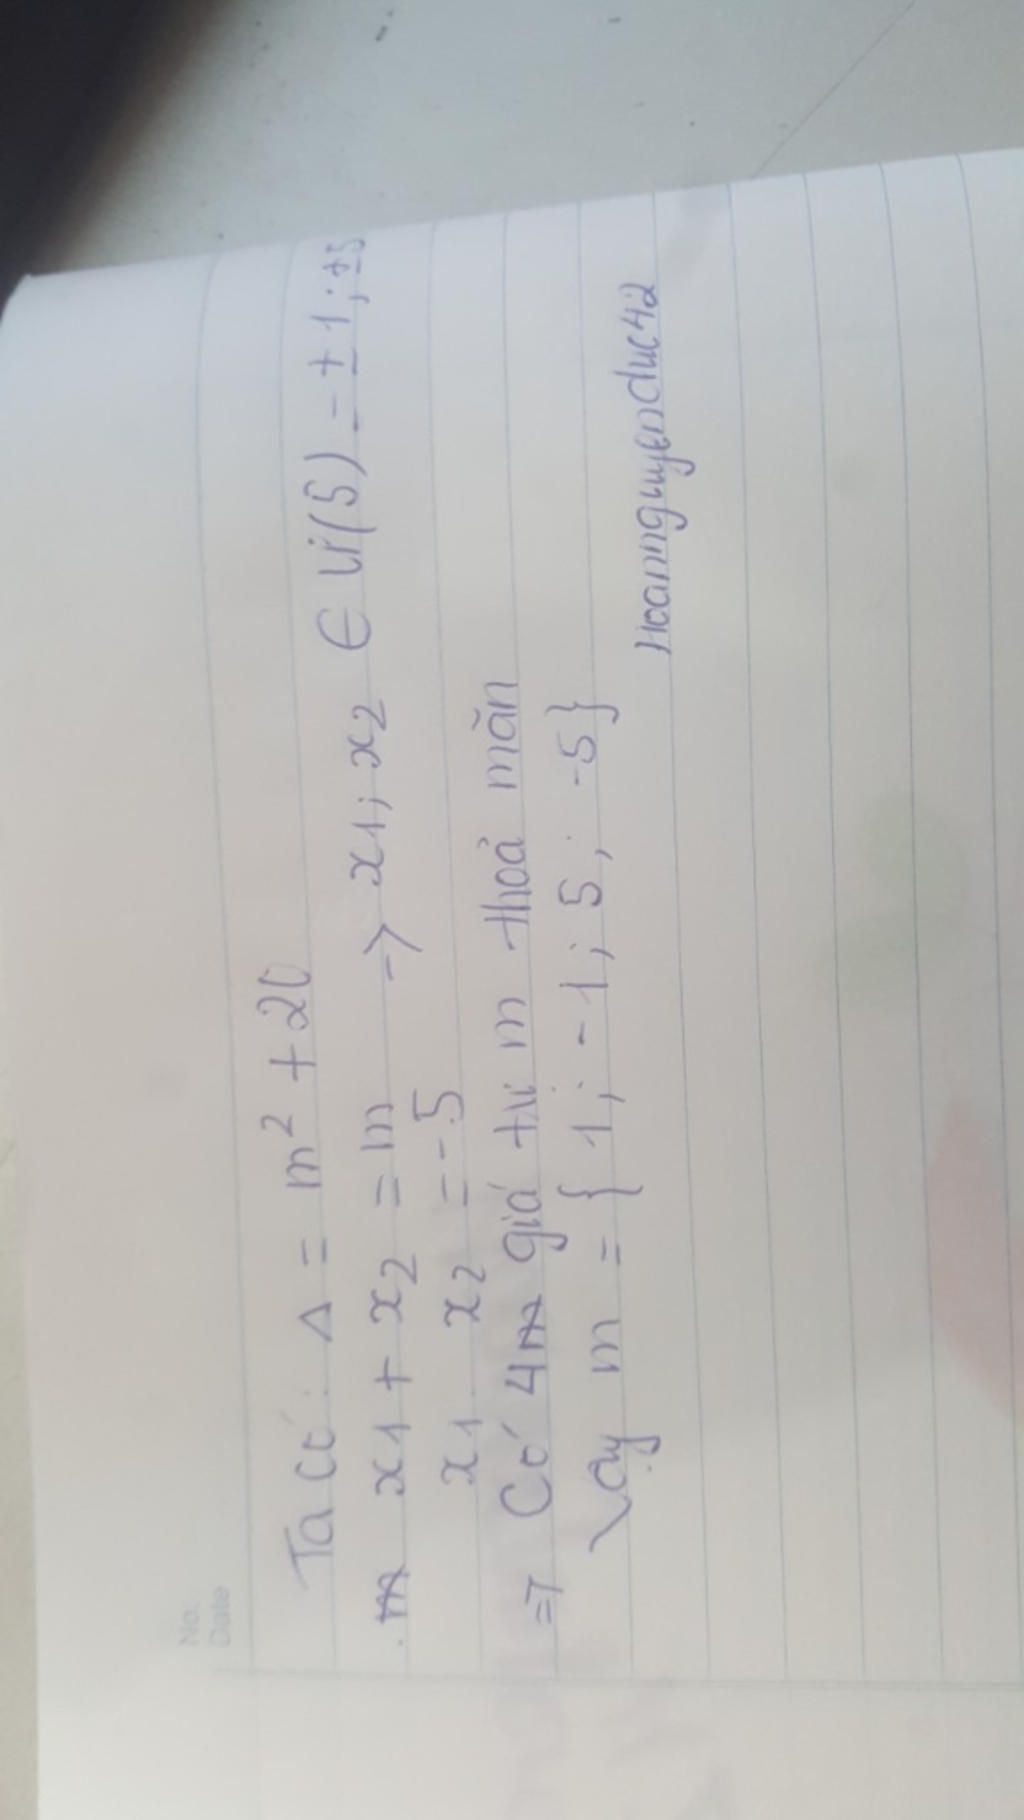 No.
Date
Ta có: Δ = m² + 20
m x1 + x2 = m → x1; x2 ∈ Ư(5) = ±1; ±5
x1 x2 = -5
=> Có 4m giá trị m thoả mãn
Vậy m = { 1; -1; 5; -5}
Hoannguyenduc42